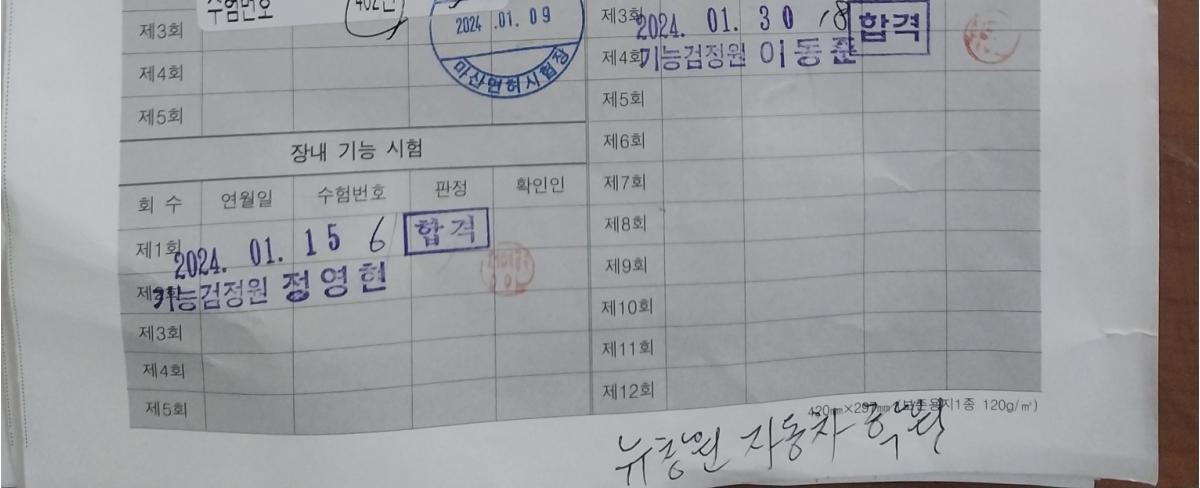 수험번호
제3회
2024.01.09
마산면허시험장
제4회
제5회
장내 기능 시험
회 수 연월일 수험번호 판정 확인인
제1회 2024. 01. 15 6 합격
기능검정원 정영현
제3회
제4회
제5회
제3회 2024. 01. 30 18 합격
제4회 기능검정원 이동준
제5회
제6회
제7회
제8회
제9회
제10회
제11회
제12회
420㎜×297㎜ 용지1종 120g/㎡)
뉴창원 자동차 학원